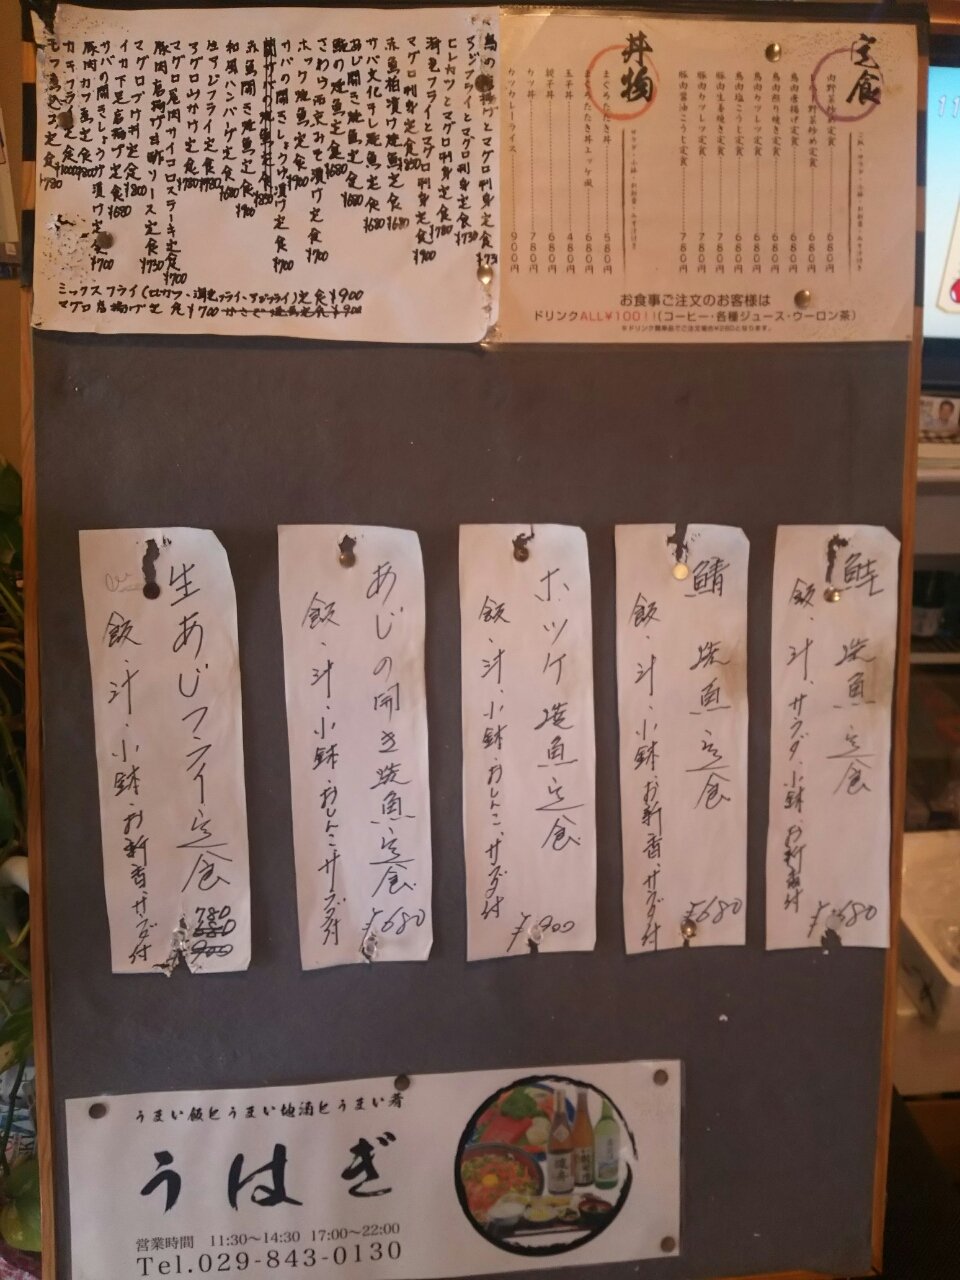 定食
ご飯・サラダ・小鉢・お新香・みそ汁付き
肉野菜炒め定食 680円
野菜炒め定食 680円
鳥肉唐揚げ定食 680円
鳥肉照り焼き定食 680円
鳥肉カツレツ定食 680円
鳥肉塩こうじ定食 680円
豚肉生姜焼き定食 780円
豚肉カツレツ定食 780円
豚肉醤油こうじ定食 780円
丼物
サラダ・小鉢・お新香・みそ汁付き
まぐろたたき丼 580円
まぐろたたき丼ユッケ風 680円
玉子丼 480円
親子丼 580円
カツ丼 780円
カツカレーライス 900円
お食事ご注文のお客様は
ドリンクALL¥100!!(コーヒー・各種ジュース・ウーロン茶)
※ドリンク類単品でご注文場合¥280となります。
アジフライとマグロ刺身定食 ¥730
ヒレカツとマグロ刺身定食 ¥780
海老フライとマグロ刺身定食 ¥900
マグロ刺身定食 ¥850
赤魚粕漬け焼魚定食 ¥680
サバ文化干し焼魚定食 ¥680
あじ開き焼魚定食 ¥680
さわら西京みそ漬け定食 ¥700
ホッケ焼魚定食 ¥900
サバの開きしょうゆ漬け定食 ¥700
赤魚開き焼魚定食 ¥900
和風ハンバーグ定食 ¥680
生アジフライ定食 ¥780
マグロ山かけ定食 ¥780
マグロ尾肉サイコロステーキ定食 ¥700
豚肉唐揚げ甘酢ソース定食 ¥730
マグロブツ切り刺身定食 ¥800
イカ下足唐揚げ定食 ¥680
サバの開きしょうゆ漬け定食 ¥700
豚肉カツ煮定食 ¥800
カキフライ定食 ¥1000
ミックスフライ(ヒレカツ・海老フライ・アジフライ)定食 ¥900
マグロ唐揚げ定食 ¥700
鮭 焼魚定食
飯・汁・サラダ・小鉢・お新香付
¥680
鯖 焼魚定食
飯・汁・小鉢・お新香・サラダ付
¥680
ホッケ 焼魚定食
飯・汁・小鉢・おしんこ・サラダ付
¥900
あじの開き焼魚定食
飯・汁・小鉢・おしんこサラダ付
¥680
生あじフライ定食
飯・汁・小鉢・お新香・サラダ付
780
680
900
うまい飯とうまい地酒とうまい肴
うはぎ
営業時間 11:30〜14:30 17:00〜22:00
Tel.029-843-0130